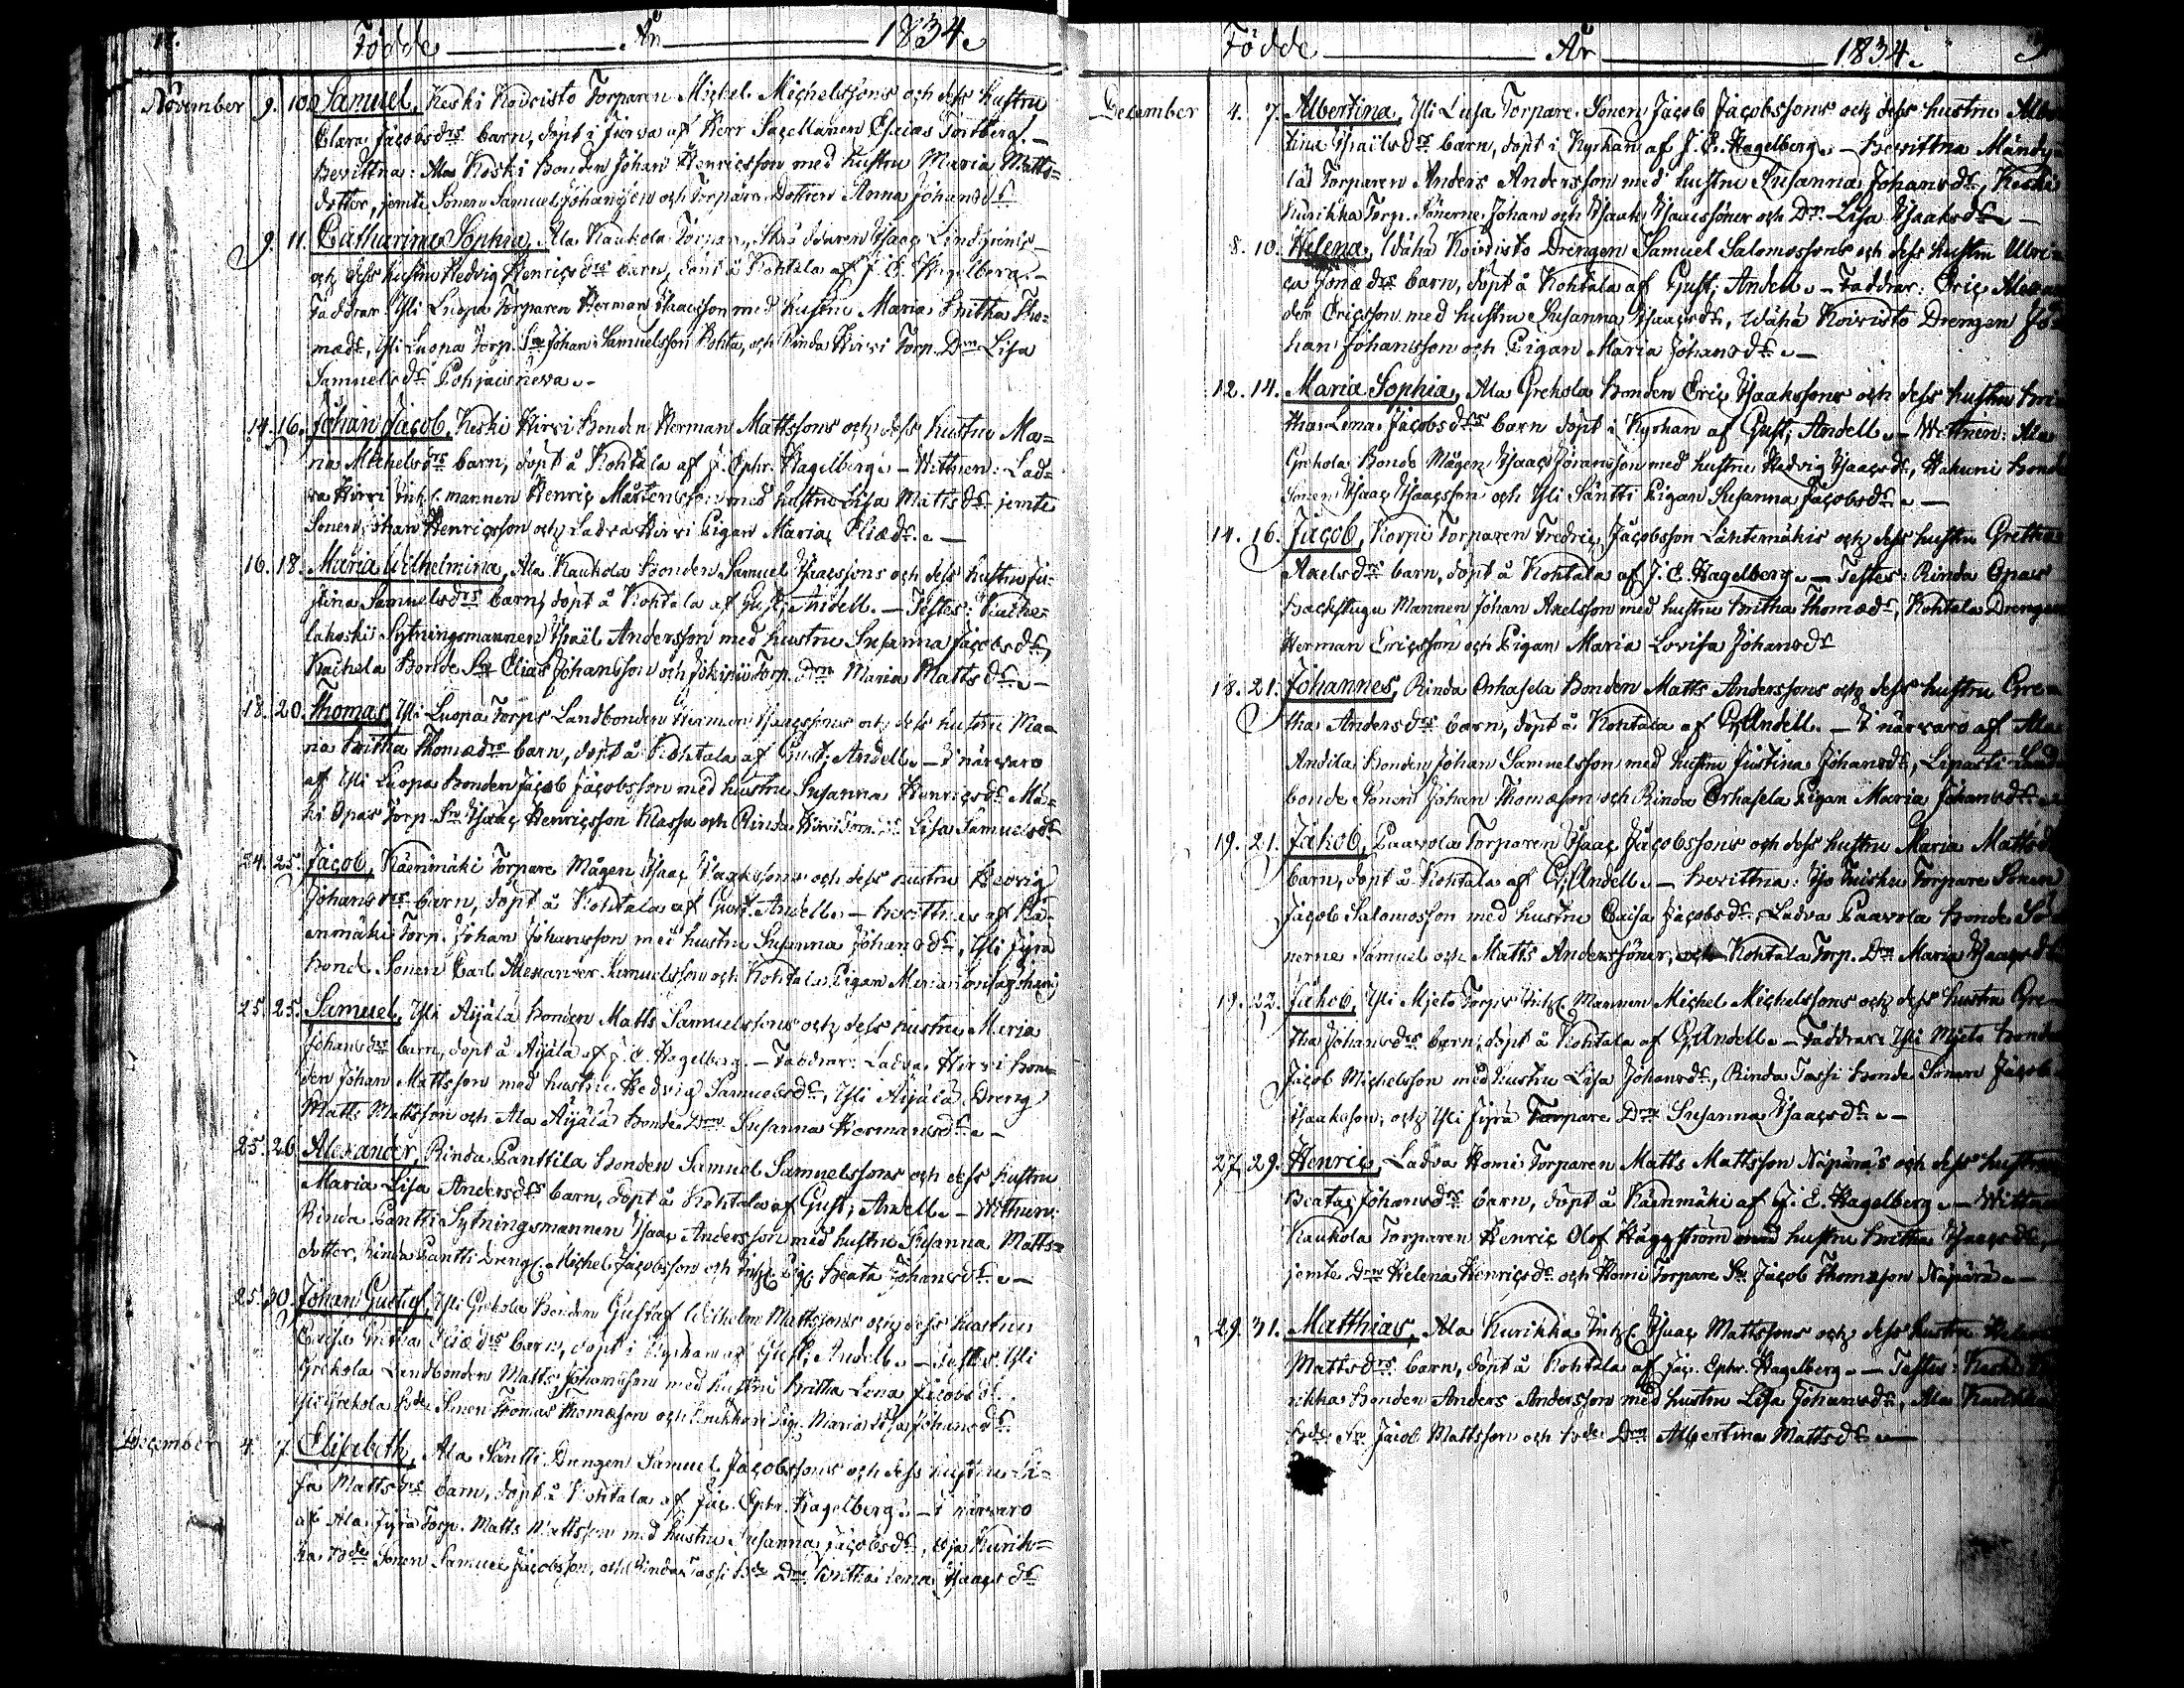 Födde År 1834.
November 9. 10. Samuel, Keski Koivisto Torparen Michel Michelssons och dess hustru
Clara Jacobsdrs barn, döpt i Jurva af Herr Sacellanen Esaias Tortberg. —
Bevittna: Ala Koski Bonden Johan Henricsson med hustru Maria Matts=
dotter, jemte Sonen Samuel Johansson och Torpare Dottren Anna Johansdr
9. 11. Catharina Sophia, Ala Kaukola Torpare, Skräddaren Isaac Lindgrens
och dess hustru Hedvig Henricsdrs barn, döpt å Kohtala af J. E. Hagelberg. —
Faddrar: Yli Luopa Torparen Herman Isaacsson med hustru Maria Britha Tho=
mædr, Yli Luopa Torp. Sn Johan Samuelsson Kohta, och Rinda Hirvi Torp. Drn Lisa
Samuelsdr Pohjaisneva. —
14. 16. Johan Jacob, Keski Hirvi Bonden Herman Mattssons och dess hustru Ma=
ria Michelsdrs barn, döpt å Kohtala af J. Ephr. Hagelberg. — Wittnen: Lad=
va Hirvi Inh. mannen Henric Mårtensson med hustru Lisa Mattsdr jemte
Sonen Johan Henricsson och Ladva Hirvi Pigan Maria Eliædr. —
16. 18. Maria Wilhelmina, Ala Kaukola Bonden Samuel Isaacssons och dess hustru Ju=
stina Samuelsdrs barn, döpt å Kohtala af Gust. Andell. — Testes:
lakoski Sytningsmannen Israël Andersson med hustru Susanna Jacobsdr,
Kachela Bonde Sn Elias Johansson och Torp. Drn Maria Mattsdr. —
18. 20. Thomas, Yli Luopa Torps Landbonden Herman Isaacssons och dess hustru Ma=
ria Britha Thomædrs barn, döpt å Kohtala af Gust. Andell. — I närvaro
af Yli Luopa Bonden Jacob Jacobsson med hustru Susanna Henricsdr Mä=
ki Opas Torp. Sn Isaac Henricsson Klassu och Rinda Hirvi Torp. Dr Lisa Samuelsdr
24. 25. Jacob, Käenmäki Torpare Mågen Isaac Isaakssons och dess hustru Hedvig
Johansdrs barn, döpt å Kohtala af Gust. Andell. — Bevittnes af Kä=
enmäki Torp. Johan Johansson med hustru Susanna Johansdr, Yli Jyrä
Bonde Sonen Carl Alexander Samuelsson och Kohtala Pigan Maria Lovisa Johansdr
25. 25. Samuel, Yli Äijälä Bonden Matts Samuelssons och dess hustru Maria
Johansdrs barn, döpt å Äijälä af J. E. Hagelberg. — Faddrar: Ladva Hirvi Bon=
den Johan Mattsson med hustru Hedvig Samuelsdr, Yli Äijälä Dreng
Matts Mattsson och Ala Äijälä Bonde Drn Susanna Hermansdr. —
25. 26. Alexander, Rinda Panttila Bonden Samuel Samuelssons och dess hustru
Maria Lisa Andersdrs barn, döpt å Kohtala af Gust. Andell. — Wittnen:
Rinda Pantti Sytningsmannen Isaac Andersson med hustru Susanna Matts=
dotter, Rinda Pantti Dreng. Michel Jacobsson och Inh. Pig. Beata Johansdr. —
25. 30. Johan Gustaf, Yli Grekola Bonden Gustaf Wilhelm Mattssons och dess hustru
Caisa Britha Eliædrs barn, döpt i Kyrkan af Gust. Andell. — Testes: Yli
Grekola Landbonden Matts Johansson med hustru Britha Lena Jacobsdr.
Yli Grekola Bde Sonen Thomas Thomæson och Pig. Maria Lisa Johansdr.
December 4. 7. Elisabeth, Ala Säntti Drengen Samuel Jacobssons och dess hustru Li=
sa Mattsdrs barn, döpt å Kohtala af Jac. Ephr. Hagelberg. — I närvaro
af Ala Jyrä Torp. Matts Mattsson med hustru Susanna Jacobsdr, Kurik=
ka Bde Sonen Samuel Jacobsson, och Rinda Tassi Bde Drn Britha Lena Isaacsdr
Födde År 1834.
December 4. 7. Albertina, Yli Lusa Torpare Sonen Jacob Jacobssons och dess hustru Alb
tina Israëlsdrs barn, döpt i Kyrkan af J. E. Hagelberg. — Bevittna Mändy=
lä Torparen Anders Andersson med hustru Susanna Johansdr, Keski
Kurikka Torp. Sönerne Johan och Isaak Isaacssöner och Dr Lisa Isaaksdr —
8. 10. Helena, Wähä Koivisto Drengen Samuel Salomossons och dess hustru Ulri=
ca Jonædrs barn, döpt å Kohtala af Gust. Andell. — Faddrar: Eric Alexan
der Ericsson med hustru Susanna Isaacsdr, Wähä Koivisto Drengen Jo=
han Johansson och Pigan Maria Johansdr. —
12. 14. Maria Sophia, Ala Grekola Bonden Eric Isaakssons och dess hustru Bri
tha Lena Jacobsdrs barn döpt i Kyrkan af Gust. Andell. — Wittnen: Ala
Grekola Bonde Mågen Isaac Göransson med hustru Hedvig Isaacsdr, Hakuni Bonde
Sonen Isaac Isaacsson och Yli Säntti Pigan Susanna Jacobsdr. —
14. 16. Jacob, Korpi Torparen Fredric Jacobsson Läntemäkis och dess hustru Gretha
Axelsdrs barn, döpt å Kohtala af J. E. Hagelberg. — Testes: Rinda Opas
Backstugu Mannen Johan Axelsson med hustru Britha Thomædr, Kohtala Drengen
Herman Ericsson och Pigan Maria Lovisa Johansdr
18. 21. Johannes, Rinda Orhasela Bonden Matts Anderssons och dess hustru Gre=
tha Andersdrs barn, döpt å Kohtala af G. Andell. — I närvaro af Ala
Andila Bonden Johan Samuelsson med hustru Justina Johansdr, Liparti Land
bonde Sonen Johan Thomæson och Rinda Orhasela Pigan Maria Johansdr. —
19. 21. Jakob, Paavola Torparen Isaac Jacobssons och dess hustru Maria Mattsdrs
barn, döpt å Kohtala af G. Andell. — Bevittna: Iso Torpare Sonen
Jacob Salomosson med hustru Caisa Jacobsdr, Ladva Paavola Bonde Sö=
nerne Samuel och Matts Anderssöner, och Kohtala Torp. Drn Maria Isaacsdr
19. 22. Jakob, Yli Mjeto Torps Inh. Mannen Michel Michelssons och dess hustru Gre=
tha Johansdrs barn, döpt å Kohtala af G. Andell. — Faddrar: Yli Mjeto Bonden
Jacob Michelsson med hustru Lisa Johansdr, Rinda Tassi Bonde Sonen Jacob
Isaaksson, och Yli Jyrä Torpare Drn Susanna Isaacsdr. —
27. 29. Henric, Ladva Homi Torparen Matts Mattsson Näpäräs och dess hustru
Beata Johansdrs barn, döpt å Käenmäki af J. E. Hagelberg. — Wittnen
Kaukola Torparen Henric Olof Häggström med hustru Britha Isaacsdr,
jemte Drn Helena Henricsdr och Homi Torpare Sn Jacob Thomæson Näpärä. —
29. 31. Matthias, Ala Kurikka Inh. Isaac Mattssons och dess hustru Helena
Mattsdrs barn, döpt å Kohtala af Jac. Ephr. Hagelberg. — Testes: Keski Ku
rikka Bonden Anders Andersson med hustru Lisa Johansdr, Ala Kurikka
Bde Sn Jacob Mattsson och Bde Drn Albertina Mattsdr. —